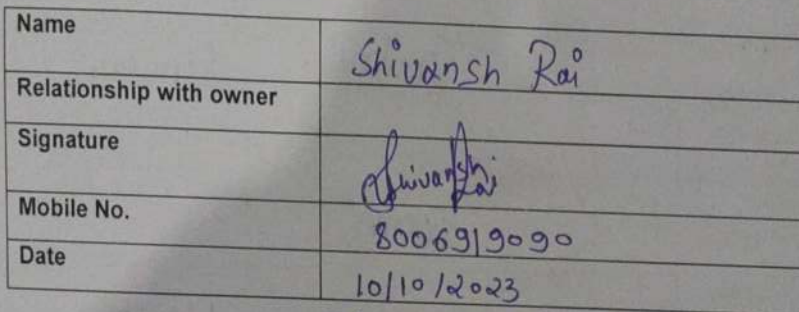 Name Shivansh Rai
Relationship with owner
Signature Shivansh Rai
Mobile No. 8006919090
Date 10/10/2023